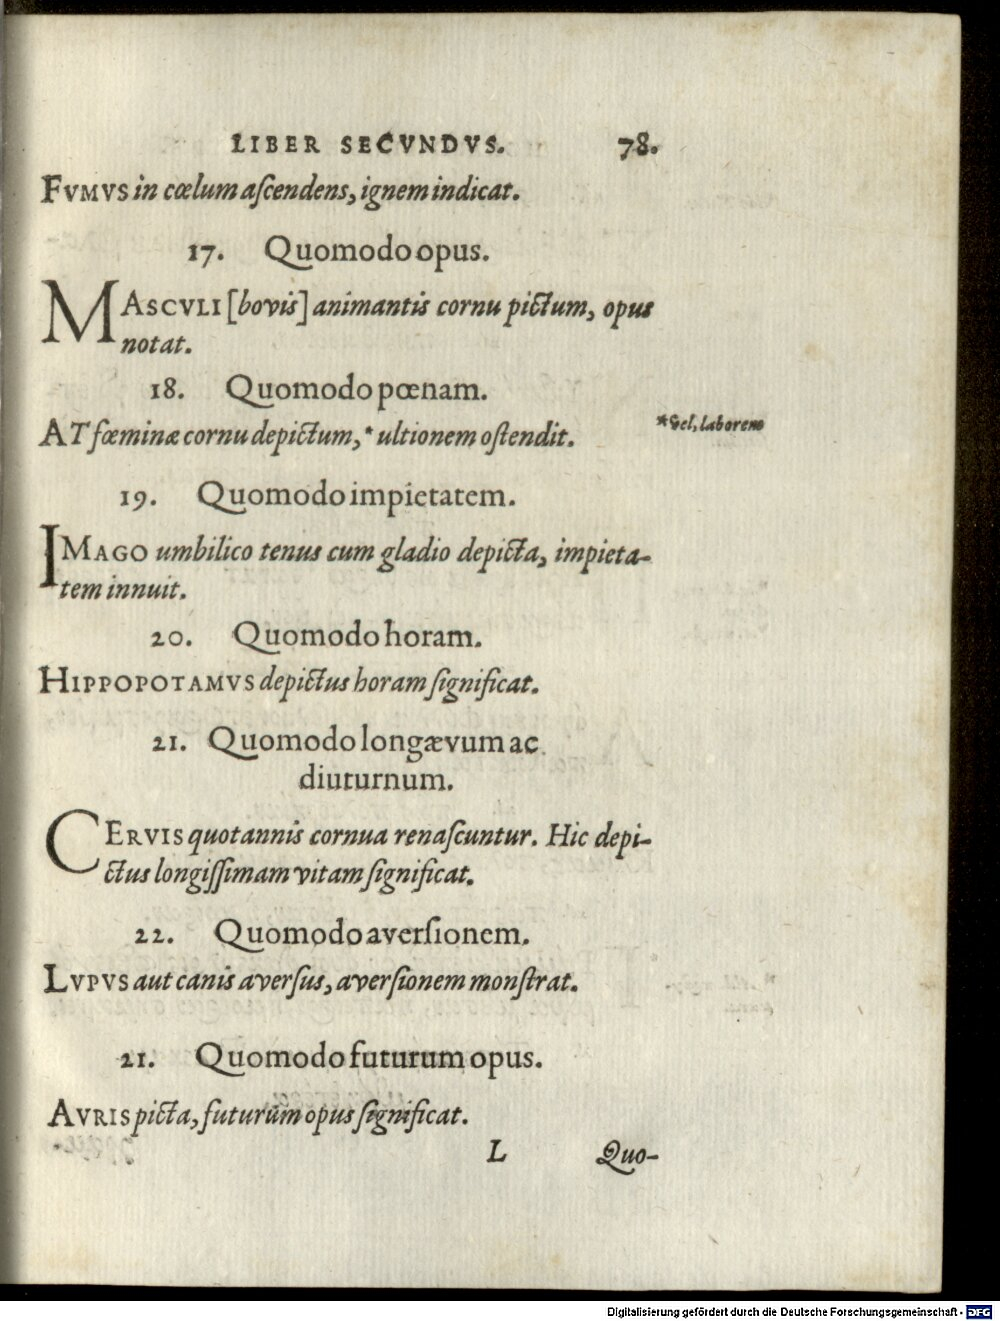 LIBER SECVNDVS. 78.
FVMVS in cœlum aſcendens, ignem indicat.
17. Quomodo opus.
MASCVLI [bovis] animantis cornu pictum, opus
notat.
18. Quomodo pœnam.
AT fœminæ cornu depictum,* ultionem oſtendit.
*vel, laborem
19. Quomodo impietatem.
IMAGO umbilico tenus cum gladio depicta, impieta-
tem innuit.
20. Quomodo horam.
HIPPOPOTAMVS depictus horam ſignificat.
21. Quomodo longævum ac
diuturnum.
CERVIS quotannis cornua renaſcuntur. Hic depi-
ctus longiſſimam vitam ſignificat.
22. Quomodo averſionem.
LVPVS aut canis averſus, averſionem monſtrat.
21. Quomodo futurum opus.
AVRIS picta, futurum opus ſignificat.
L Quo-
Digitalisierung gefördert durch die Deutsche Forschungsgemeinschaft - DFG